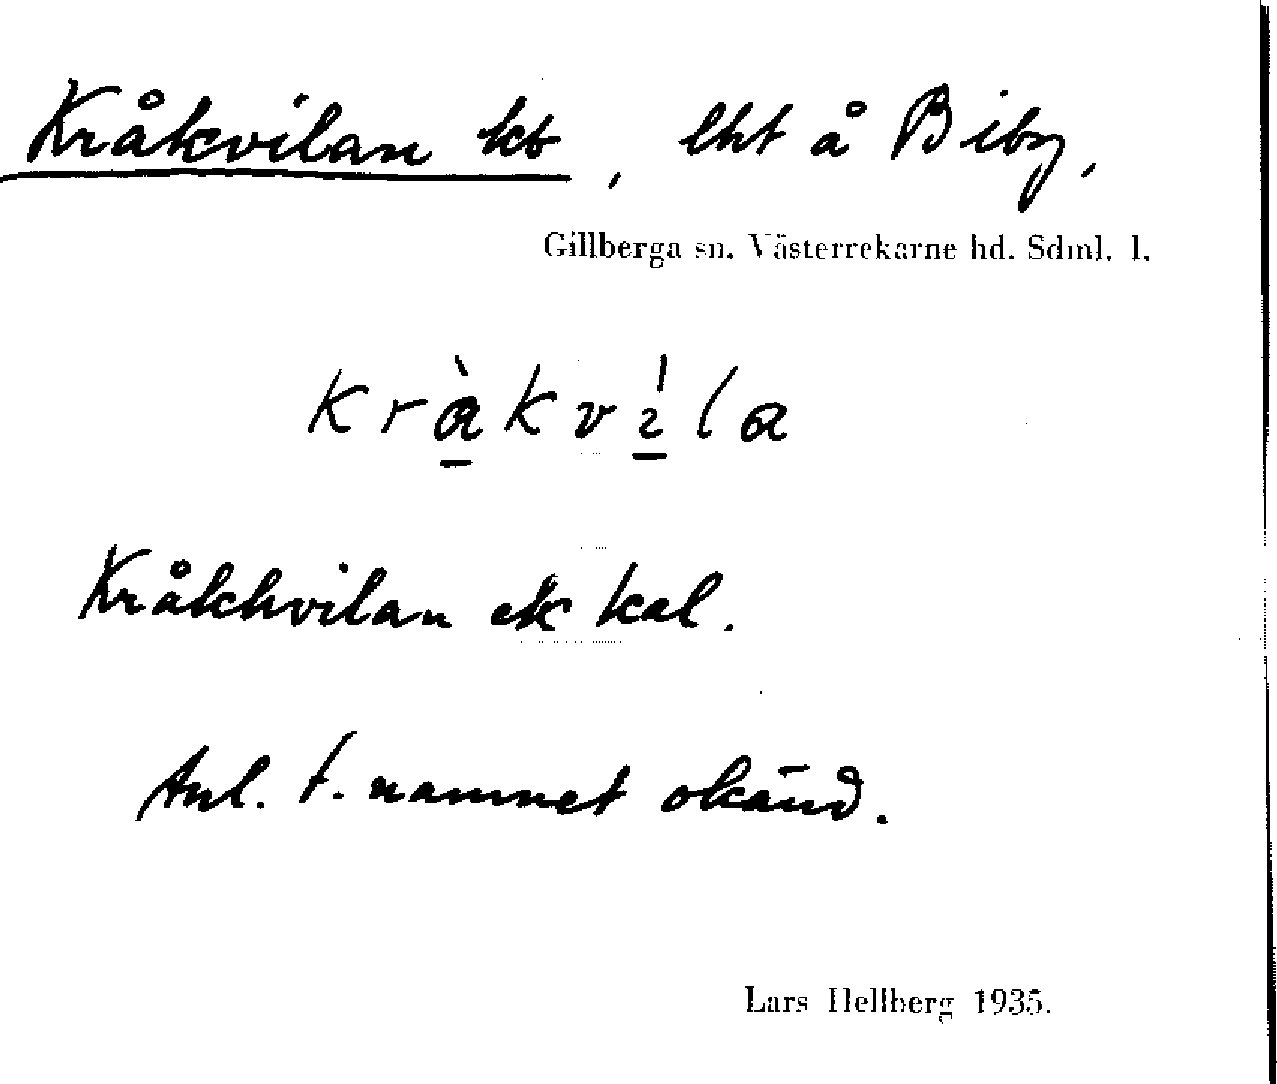 Kråkvilan kb, lht å Biby,
Gillberga sn. Västerrekarne hd. Sdml. l.
kràkvìla
Kråkhvilan ek kal.
Anl. t. namnet okänd.
Lars Hellberg 1935.